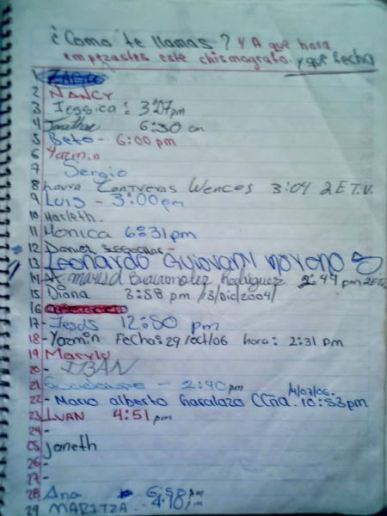 ¿Como te llamas? Y A que hora
empezastes este chismografo. y que fecha
1
2 NANCY
3 Jessica: 3:27pm
4 Jonathan 6:30 am
5 Beto - 6:00 pm
6 Yazmin
7 Sergio
8 Laura Contreras Wences 3:04 2E T.V.
9 LUIS - 3:00pm
10 Marleth.
11 Monica 6:31pm
12 Daniel
13 Leonardo Guiovany Moreno S
14 Marisol Rodriguez 2:49 pm 2E
15 Diana 3:58 pm /3/Dic/2004/
16
17- Jesus 12:50 pm
18- Yazmin Fecha: 29/oct/06 hora: 2:31 pm
19 Maryly
20 - IBAN
21 Guadalupe - 2:40pm
22 - Mario alberto 14/07/06. 10:53pm
23 IVAN 4:51 pm
24-
25 janeth
26-
27-
28 Ana 6:58 pm
29 MARITZA